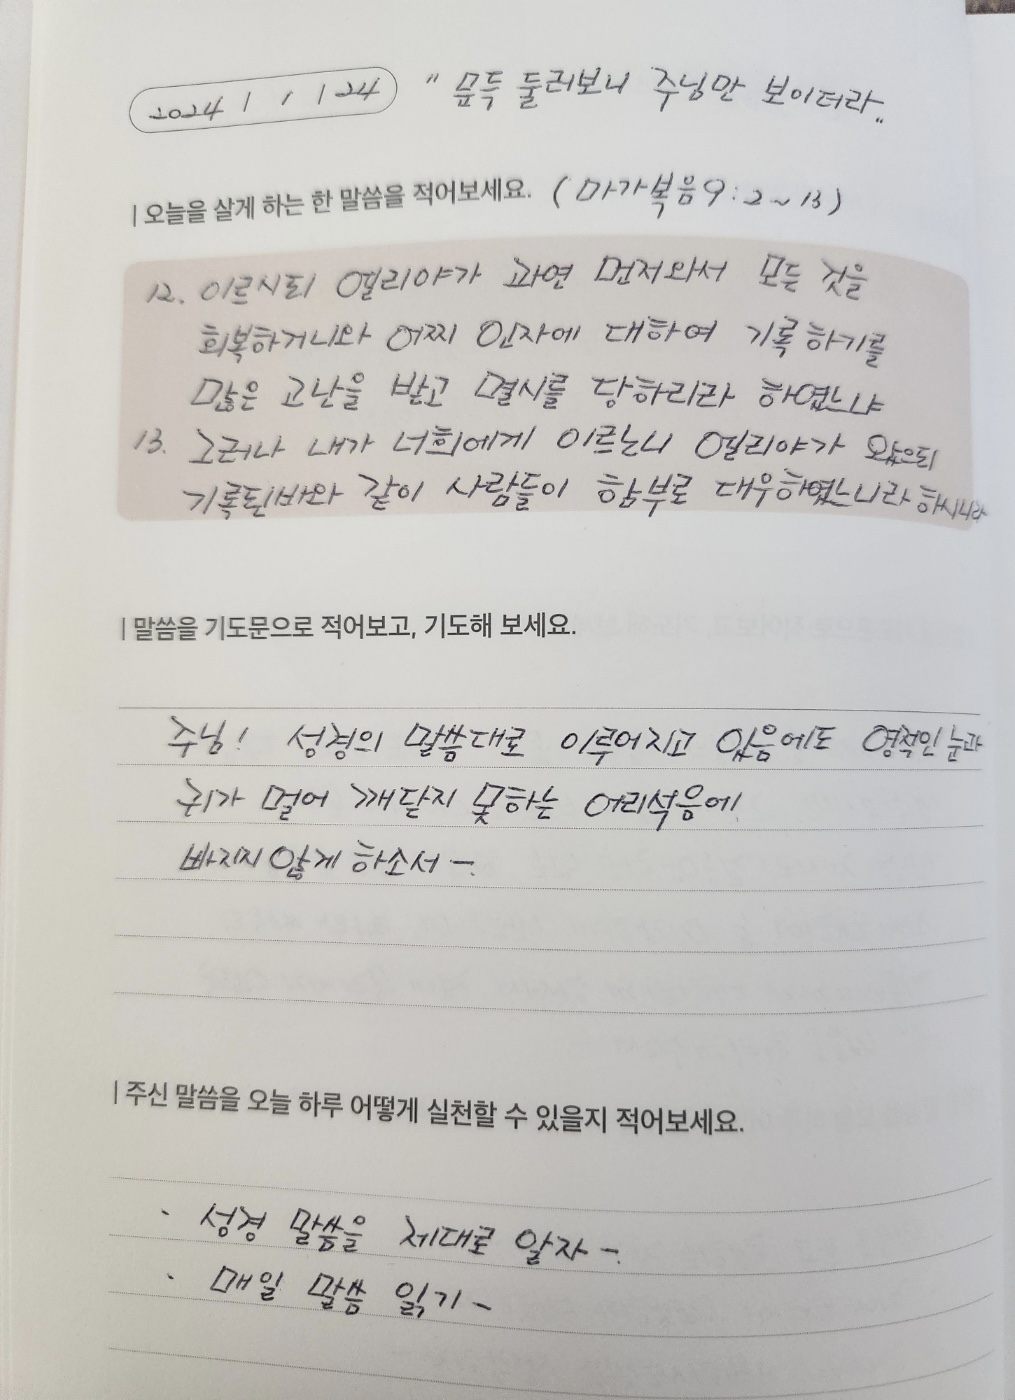 2024 / 1 / 24 " 문득 둘러보니 주님만 보이더라 "
| 오늘을 살게 하는 한 말씀을 적어보세요. (마가복음 9:2~13)
12. 이르시되 엘리야가 과연 먼저와서 모든 것을
회복하거니와 어찌 인자에 대하여 기록하기를
많은 고난을 받고 멸시를 당하리라 하였느냐
13. 그러나 내가 너희에게 이르노니 엘리야가 왔으되
기록된바와 같이 사람들이 함부로 대우하였느니라 하시니라
| 말씀을 기도문으로 적어보고, 기도해 보세요.
주님! 성경의 말씀대로 이루어지고 있음에도 영적인 눈과
귀가 멀어 깨닫지 못하는 어리석음에
빠지지 않게 하소서 -.
| 주신 말씀을 오늘 하루 어떻게 실천할 수 있을지 적어보세요.
· 성경 말씀을 제대로 알자 -.
· 매일 말씀 읽기 -